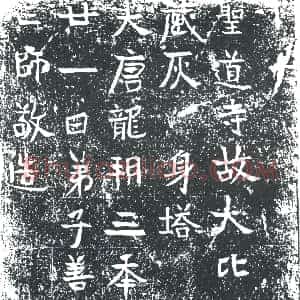 聖道寺故大比
灰身塔
大唐龍朔三年
廿一日弟子善
師敬造